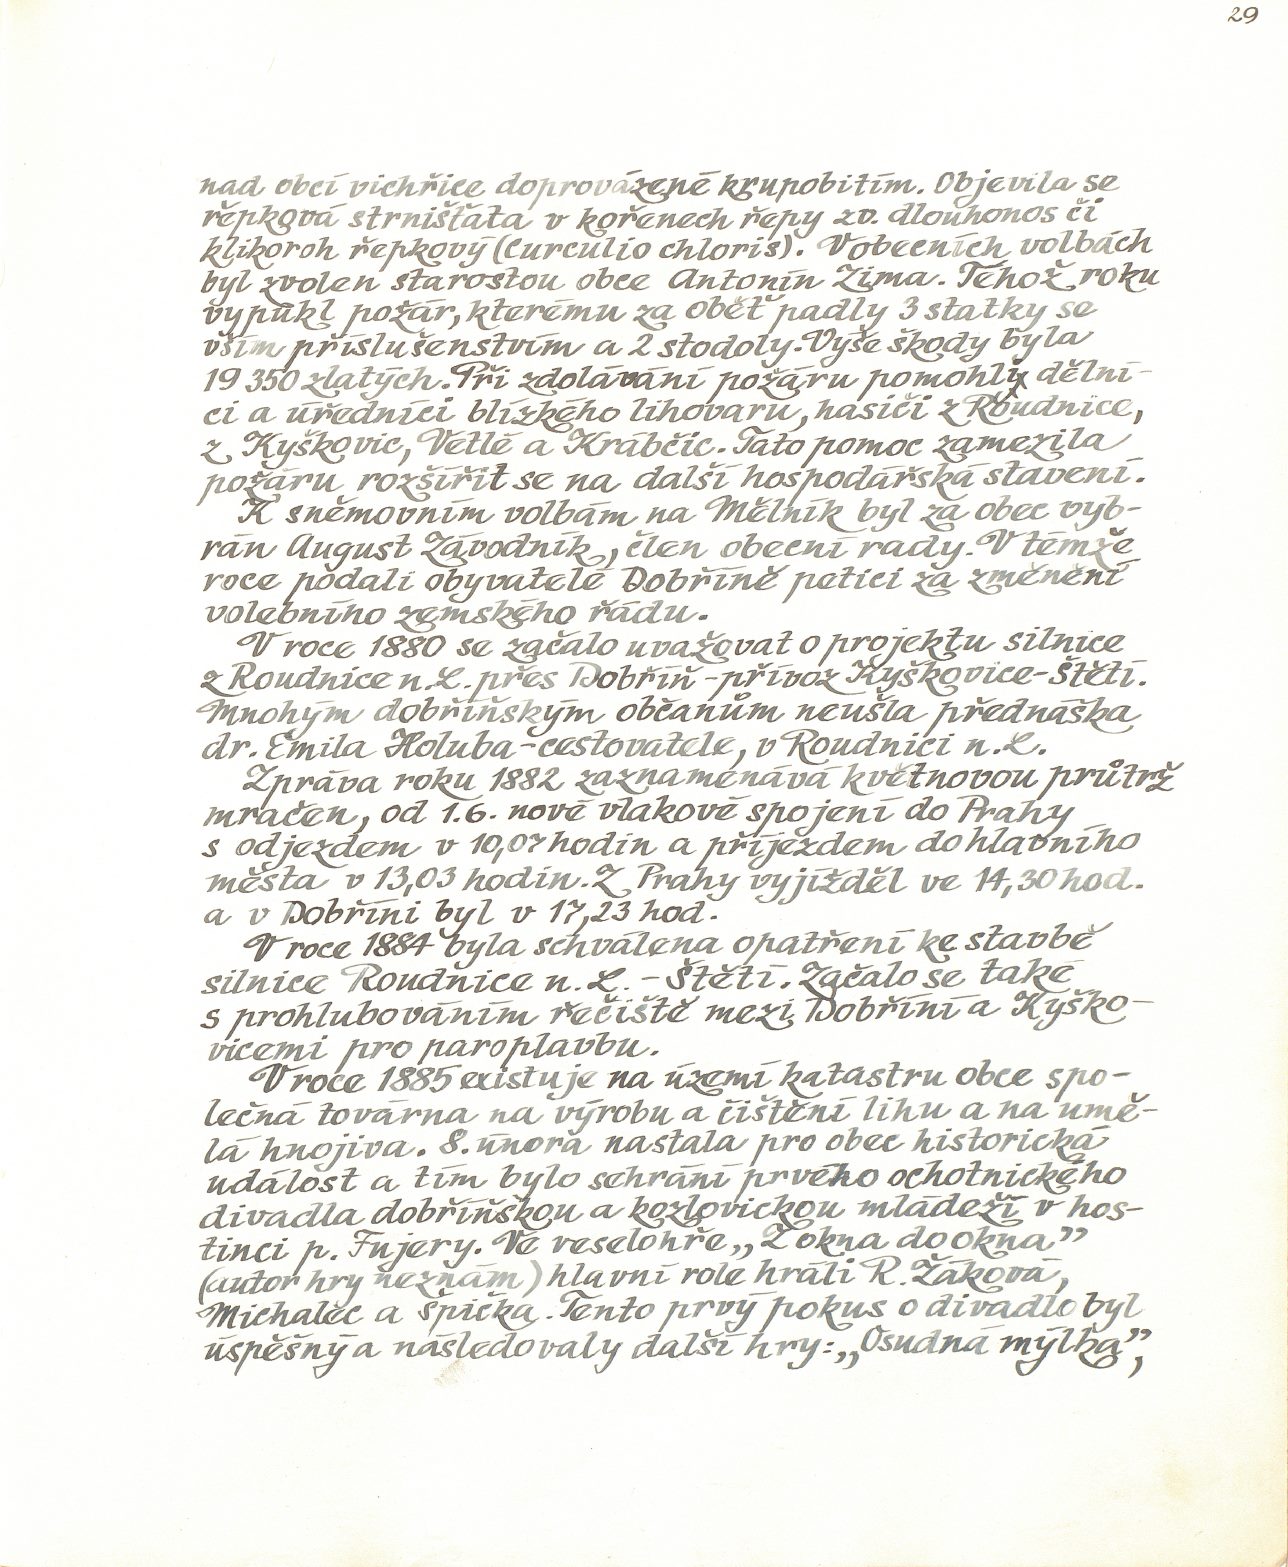 29
nad obcí vichřice doprovázené krupobitím. Objevila se
řepková strnišťata v kořenech řepy zv. dlouhonos či
klikoroh řepkový (Curculio chloris). V obecních volbách
byl zvolen starostou obce Antonín Zima. Téhož roku
vypukl požár, kterému za oběť padly 3 statky se
vším příslušenstvím a 2 stodoly. Výše škody byla
19 350 zlatých. Při zdolávání požáru pomohli dělní-
ci a úředníci blízkého lihovaru, hasiči z Roudnice,
z Kyškovic, Vetlé a Krabčic. Tato pomoc zamezila
požáru rozšířit se na další hospodářská stavení.
K sněmovním volbám na Mělník byl za obec vyb-
rán August Závodník, člen obecní rady. V témže
roce podali obyvatelé Dobříně petici za změnění
volebního zemského řádu.
V roce 1880 se začalo uvažovat o projektu silnice
z Roudnice n. L. přes Dobříň - přívoz Kyškovice - Štětí.
Mnohým dobříňským občanům neušla přednáška
dr. Emila Holuba - cestovatele, v Roudnici n. L.
Zpráva roku 1882 zaznamenává květnovou průtrž
mračen, od 1.6. nové vlakové spojení do Prahy
s odjezdem v 10,07 hodin a příjezdem do hlavního
města v 13,03 hodin. Z Prahy vyjížděl ve 14,30 hod.
a v Dobříni byl v 17,23 hod.
V roce 1884 byla schválena opatření ke stavbě
silnice Roudnice n. L. - Štětí. Začalo se také
s prohlubováním řečiště mezi Dobříní a Kyško-
vicemi pro paroplavbu.
V roce 1885 existuje na území katastru obce spo-
lečná továrna na výrobu a čištění lihu a na umě-
lá hnojiva. 8. února nastala pro obec historická
událost a tím bylo sehrání prvého ochotnického
divadla dobříňskou a kozlovickou mládeží v hos-
tinci p. Fujery. Ve veselohře „Z okna do okna”
(autor hry neznám) hlavní role hráli R. Žáková,
Michalec a Špička. Tento prvý pokus o divadlo byl
úspěšný a následovaly další hry: „Osudná mýlka”,